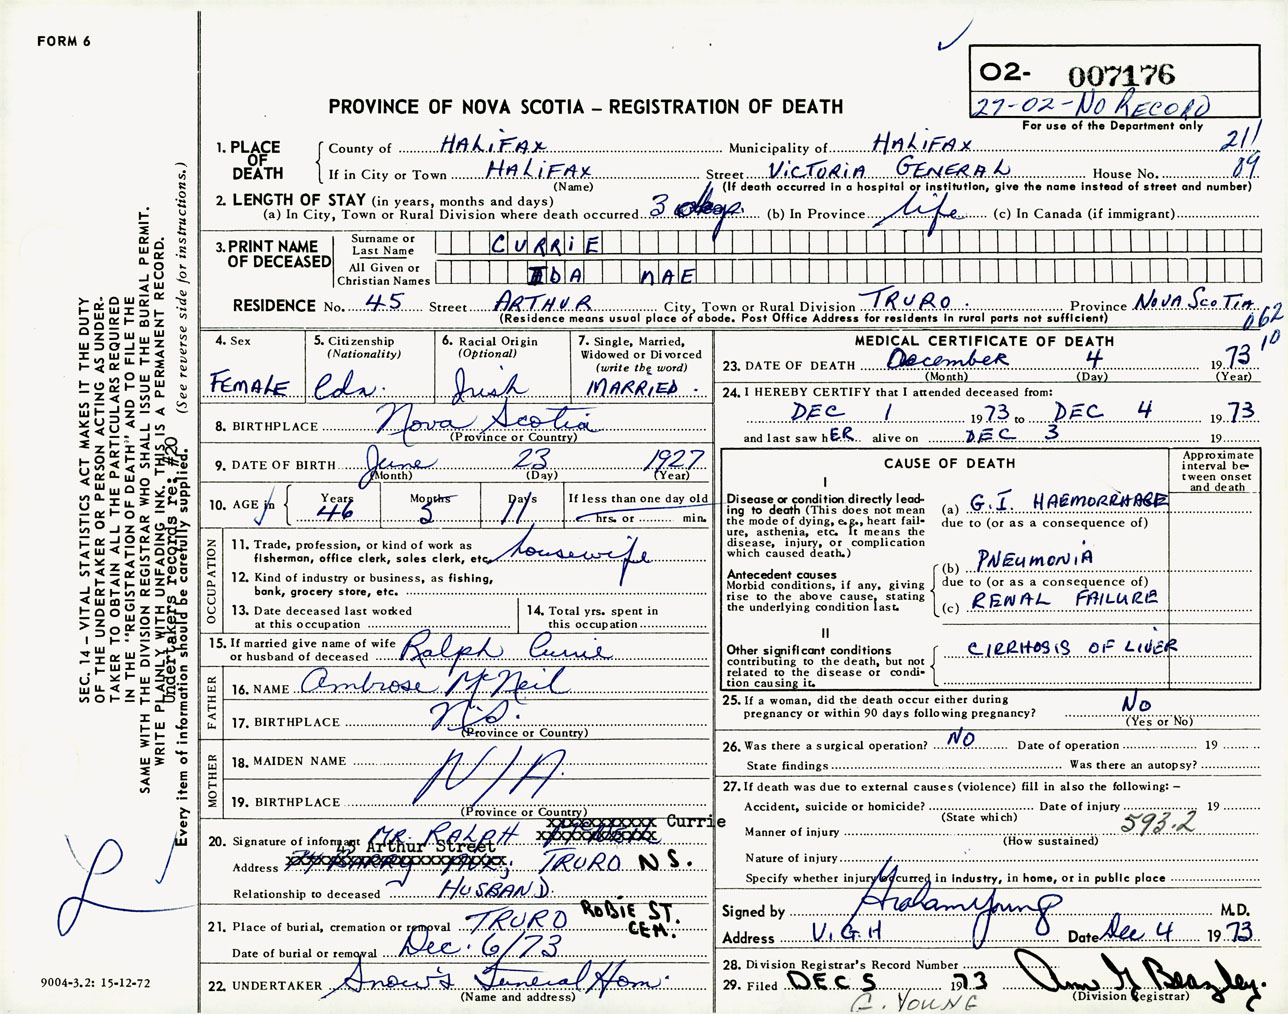 FORM 6
O2- 007176
27-02-NO RECORD
For use of the Department only
PROVINCE OF NOVA SCOTIA – REGISTRATION OF DEATH
1. PLACE OF DEATH
County of HALIFAX Municipality of HALIFAX 211
If in City or Town HALIFAX Street VICTORIA GENERAL House No. 09
(Name) (If death occurred in a hospital or institution, give the name instead of street and number)
2. LENGTH OF STAY (in years, months and days)
(a) In City, Town or Rural Division where death occurred 3 days (b) In Province life (c) In Canada (if immigrant)
3. PRINT NAME OF DECEASED
Surname or Last Name CURRIE
All Given or Christian Names IDA MAE
RESIDENCE No. 45 Street ARTHUR City, Town or Rural Division TRURO. Province NOVA SCOTIA
(Residence means usual place of abode. Post Office Address for residents in rural parts not sufficient) 062
10
4. Sex FEMALE
5. Citizenship (Nationality) Cdn.
6. Racial Origin (Optional) Irish
7. Single, Married, Widowed or Divorced (write the word) MARRIED.
8. BIRTHPLACE Nova Scotia
(Province or Country)
9. DATE OF BIRTH June 23 1927
(Month) (Day) (Year)
10. AGE in Years 46 Months 5 Days 11 If less than one day old
hrs. or min.
OCCUPATION
11. Trade, profession, or kind of work as fisherman, office clerk, sales clerk, etc. housewife
12. Kind of industry or business, as fishing, bank, grocery store, etc.
13. Date deceased last worked at this occupation
14. Total yrs. spent in this occupation
15. If married give name of wife or husband of deceased Ralph Currie
FATHER
16. NAME Ambrose McNeil
17. BIRTHPLACE N.S.
(Province or Country)
MOTHER
18. MAIDEN NAME N/A.
19. BIRTHPLACE
(Province or Country)
20. Signature of informant MR. RALPH Currie
45 Arthur Street
Address TRURO N.S.
Relationship to deceased HUSBAND.
21. Place of burial, cremation or removal TRURO ROBIE ST. CEM.
Date of burial or removal Dec. 6/73
22. UNDERTAKER Snow's Funeral Hom.
(Name and address)
MEDICAL CERTIFICATE OF DEATH
23. DATE OF DEATH December 4 1973
(Month) (Day) (Year)
24. I HEREBY CERTIFY that I attended deceased from:
DEC 1 1973 to DEC 4 1973
and last saw hER alive on DEC 3 19
CAUSE OF DEATH
Approximate interval between onset and death
I
Disease or condition directly leading to death (This does not mean the mode of dying, e.g., heart failure, asthenia, etc. It means the disease, injury, or complication which caused death.)
(a) G.I. HAEMORRHAGE
due to (or as a consequence of)
Antecedent causes
Morbid conditions, if any, giving rise to the above cause, stating the underlying condition last.
(b) PNEUMONIA
due to (or as a consequence of)
(c) RENAL FAILURE
II
Other significant conditions contributing to the death, but not related to the disease or condition causing it.
CIRRHOSIS OF LIVER
25. If a woman, did the death occur either during pregnancy or within 90 days following pregnancy? No
(Yes or No)
26. Was there a surgical operation? NO Date of operation 19
State findings Was there an autopsy?
27. If death was due to external causes (violence) fill in also the following: –
Accident, suicide or homicide? Date of injury 19
(State which)
Manner of injury 593.2
(How sustained)
Nature of injury
Specify whether injury occurred in industry, in home, or in public place
Signed by Graham Young M.D.
Address V.G.H Date Dec 4 1973
28. Division Registrar's Record Number
29. Filed DEC 5 1973 Ann G Beazley.
(Division Registrar)
G. YOUNG
SEC. 14 – VITAL STATISTICS ACT MAKES IT THE DUTY
OF THE UNDERTAKER OR PERSON ACTING AS UNDER-
TAKER TO OBTAIN ALL THE PARTICULARS REQUIRED
IN THE "REGISTRATION OF DEATH" AND TO FILE THE
SAME WITH THE DIVISION REGISTRAR WHO SHALL ISSUE THE BURIAL PERMIT.
WRITE PLAINLY WITH UNFADING INK. THIS IS A PERMANENT RECORD.
Undertakers records re: #20
Every item of information should be carefully supplied. (See reverse side for instructions.)
9004-3.2: 15-12-72